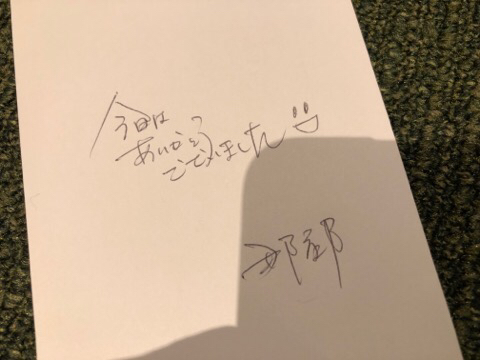 今日は
ありがとう
ございました